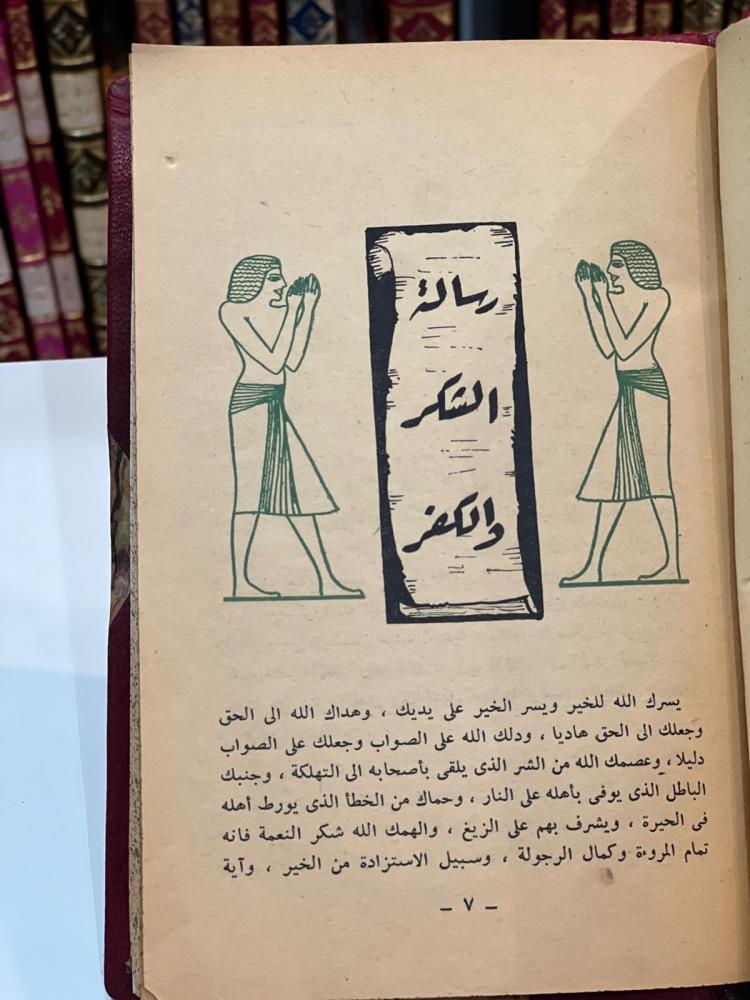 رسالة
الشكر
والكفر
يسرك الله للخير ويسر الخير على يديك ، وهداك الله الى الحق
وجعلك الى الحق هاديا ، ودلك الله على الصواب وجعلك على الصواب
دليلا ، وعصمك الله من الشر الذى يلقى بأصحابه الى التهلكة ، وجنبك
الباطل الذى يوفى بأهله على النار ، وحماك من الخطأ الذى يورط أهله
فى الحيرة ، ويشرف بهم على الزيغ ، والهمك الله شكر النعمة فانه
تمام المروءة وكمال الرجولة ، وسبيل الاستزادة من الخير ، وآية
– ٧ –